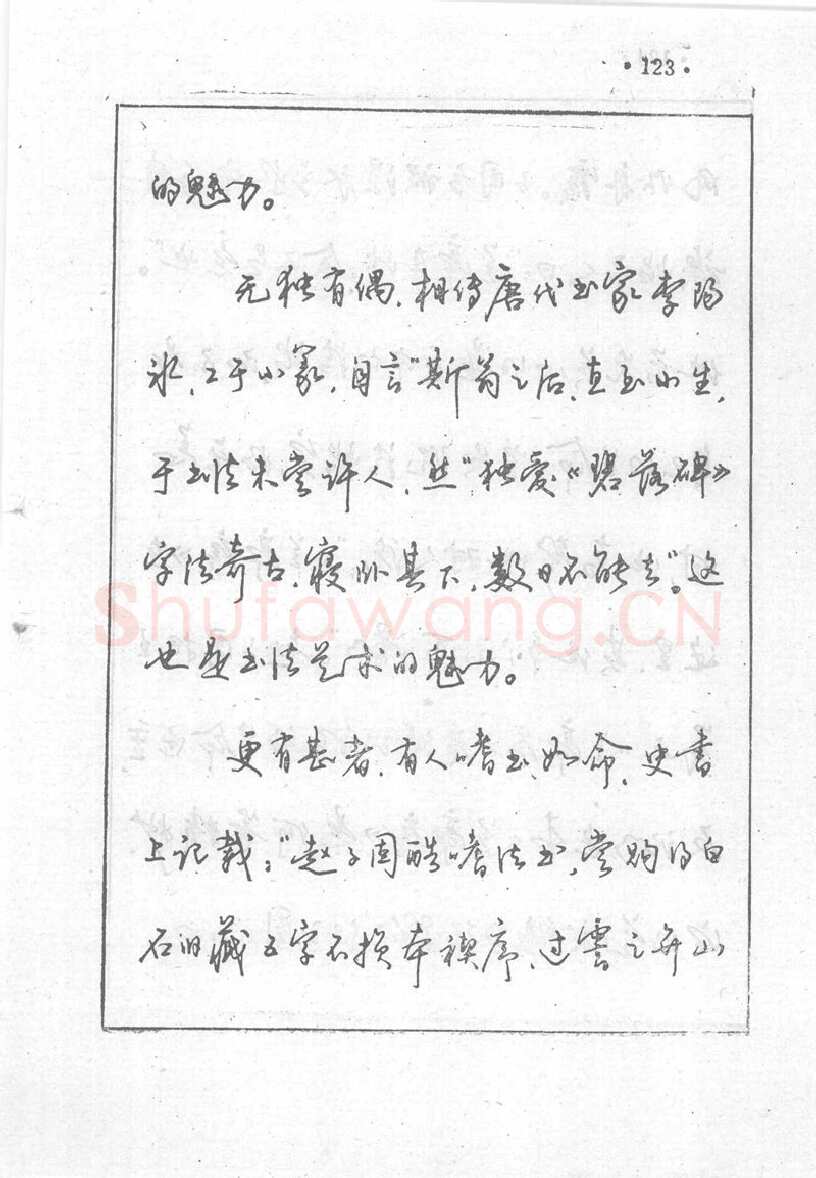 ·123·
的魅力。
无独有偶,相传唐代书家李阳
冰,工于小篆,自言"斯翁之后,直至小生,
于书法未尝许人,然"独爱《碧落碑》
字法奇古,寝卧其下,数日不能去"。这
也是书法艺术的魅力。
更有甚者,有人嗜书如命,史书
上记载:"赵子固酷嗜法书,尝购得白
石旧藏五字不损本禊序,过霅之弁山
Shufawang.CN